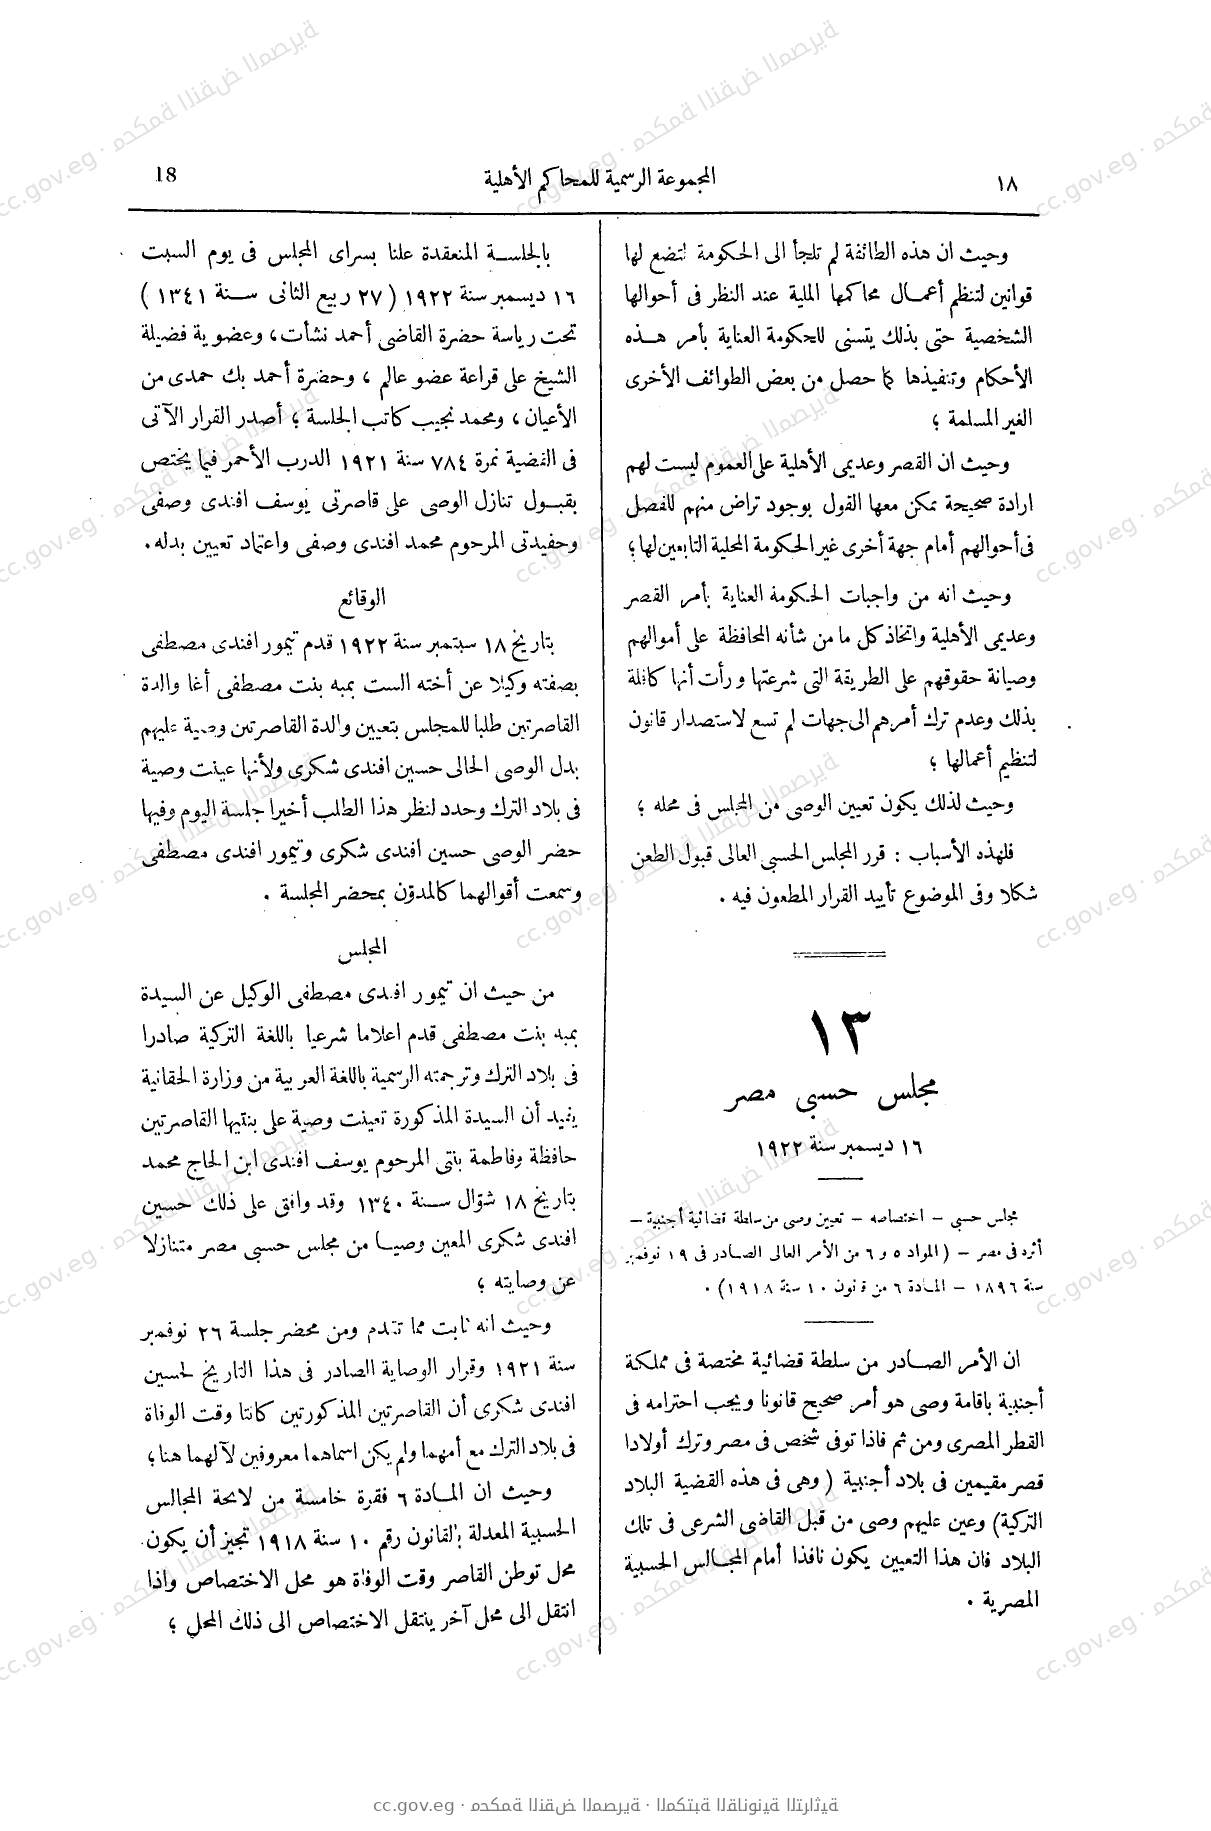 ١٨
المجموعة الرسمية للمحاكم الأهلية
18
وحيث ان هذه الطائفة لم تلجأ الى الحكومة لتضع لها
قوانين لتنظم أعمال محاكمها الملية عند النظر فى أحوالها
الشخصية حتى بذلك يتسنى للحكومة العناية بأمر هذه
الأحكام وتنفيذها كما حصل من بعض الطوائف الأخرى
الغير المسلمة ؛
وحيث ان القصر وعديمى الأهلية على العموم ليست لهم
ارادة صحيحة يمكن معها القول بوجود تراض منهم للفصل
فى أحوالهم أمام جهة أخرى غير الحكومة المحلية التابعين لها ؛
وحيث انه من واجبات الحكومة العناية بأمر القصر
وعديمى الأهلية واتخاذ كل ما من شأنه المحافظة على أموالهم
وصيانة حقوقهم على الطريقة التى شرعتها ورأت أنها كافلة
بذلك وعدم ترك أمرهم الى جهات لم تسع لاستصدار قانون
لتنظيم أعمالها ؛
وحيث لذلك يكون تعيين الوصى من المجلس فى محله ؛
فلهذه الأسباب : قرر المجلس الحسبى العالى قبول الطعن
شكلا وفى الموضوع تأييد القرار المطعون فيه .
١٣
مجلس حسبى مصر
١٦ ديسمبر سنة ١٩٢٢
مجلس حسبى – اختصاصه – تعيين وصى من سلطة قضائية أجنبية –
أثره فى مصر – (المواد ٥ و ٦ من الأمر العالى الصادر فى ١٩ نوفمبر
سنة ١٨٩٦ – المادة ٦ من قانون ١٠ سنة ١٩١٨) .
ان الأمر الصادر من سلطة قضائية مختصة فى مملكة
أجنبية باقامة وصى هو أمر صحيح قانونا ويجب احترامه فى
القطر المصرى ومن ثم فاذا توفى شخص فى مصر وترك أولادا
قصر مقيمين فى بلاد أجنبية (وهى فى هذه القضية البلاد
التركية) وعين عليهم وصى من قبل القاضى الشرعى فى تلك
البلاد فان هذا التعيين يكون نافذا أمام المجالس الحسبية
المصرية .
بالجلسة المنعقدة علنا بسراى المجلس فى يوم السبت
١٦ ديسمبر سنة ١٩٢٢ (٢٧ ربيع الثانى سنة ١٣٤١)
تحت رياسة حضرة القاضى أحمد نشأت، وعضوية فضيلة
الشيخ على قراعة عضو عالم ، وحضرة أحمد بك حمدى من
الأعيان ، ومحمد نجيب كاتب الجلسة ؛ أصدر القرار الآتى
فى القضية نمرة ٧٨٤ سنة ١٩٢١ الدرب الأحمر فيما يختص
بقبول تنازل الوصى على قاصرتى يوسف افندى وصفى
وحفيدتى المرحوم محمد افندى وصفى واعتماد تعيين بدله.
الوقائع
بتاريخ ١٨ سبتمبر سنة ١٩٢٢ قدم تيمور افندى مصطفى
بصفته وكيلا عن أخته الست بمبه بنت مصطفى أغا والدة
القاصرتين طلبا للمجلس بتعيين والدة القاصرتين وصية عليهم
بدل الوصى الحالى حسين افندى شكرى ولأنها عينت وصية
فى بلاد الترك وحدد لنظر هذا الطلب أخيرا جلسة اليوم وفيها
حضر الوصى حسين افندى شكرى وتيمور افندى مصطفى
وسمعت أقوالهما كالمدوّن بمحضر الجلسة .
المجلس
من حيث ان تيمور افندى مصطفى الوكيل عن السيدة
بمبه بنت مصطفى قدم اعلاما شرعيا باللغة التركية صادرا
فى بلاد الترك وترجمته الرسمية باللغة العربية من وزارة الحقانية
يفيد أن السيدة المذكورة تعينت وصية على بنتيها القاصرتين
حافظة وفاطمة بنتى المرحوم يوسف افندى ابن الحاج محمد
بتاريخ ١٨ شوّال سنة ١٣٤٠ وقد وافق على ذلك حسين
افندى شكرى المعين وصيا من مجلس حسبى مصر متنازلا
عن وصايته ؛
وحيث انه ثابت مما تقدم ومن محضر جلسة ٢٦ نوفمبر
سنة ١٩٢١ وقرار الوصاية الصادر فى هذا التاريخ لحسين
افندى شكرى أن القاصرتين المذكورتين كانتا وقت الوفاة
فى بلاد الترك مع أمهما ولم يكن اسماهما معروفين لآلهما هنا ؛
وحيث ان المادة ٦ فقرة خامسة من لائحة المجالس
الحسبية المعدلة بالقانون رقم ١٠ سنة ١٩١٨ تجيز أن يكون
محل توطن القاصر وقت الوفاة هو محل الاختصاص واذا
انتقل الى محل آخر ينتقل الاختصاص الى ذلك المحل ؛
cc.gov.eg · محكمة النقض المصرية · المكتبة القانونية التراثية